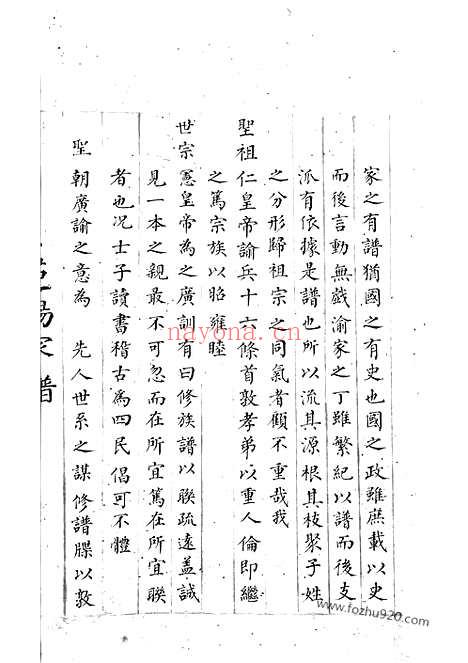 家之有譜猶國之有史也國之政雖龐載以史
而後言動無戲渝家之丁雖繁紀以譜而後支
派有依據是譜也所以流其源根其枝聚子姓
之分形歸祖宗之同氣者顧不重哉我
聖祖仁皇帝諭兵十六條首敦孝弟以重人倫即繼
之篤宗族以昭雍睦
世宗憲皇帝為之廣訓有曰修族譜以聯疏遠蓋誠
見一本之親最不可忽而在所宜篤在所宜聯
者也况士子讀書稽古為四民倡可不體
聖朝廣諭之意為 先人世系之謀修譜牒以敦
楊家譜
nayona.cn
www.fozhu920.com